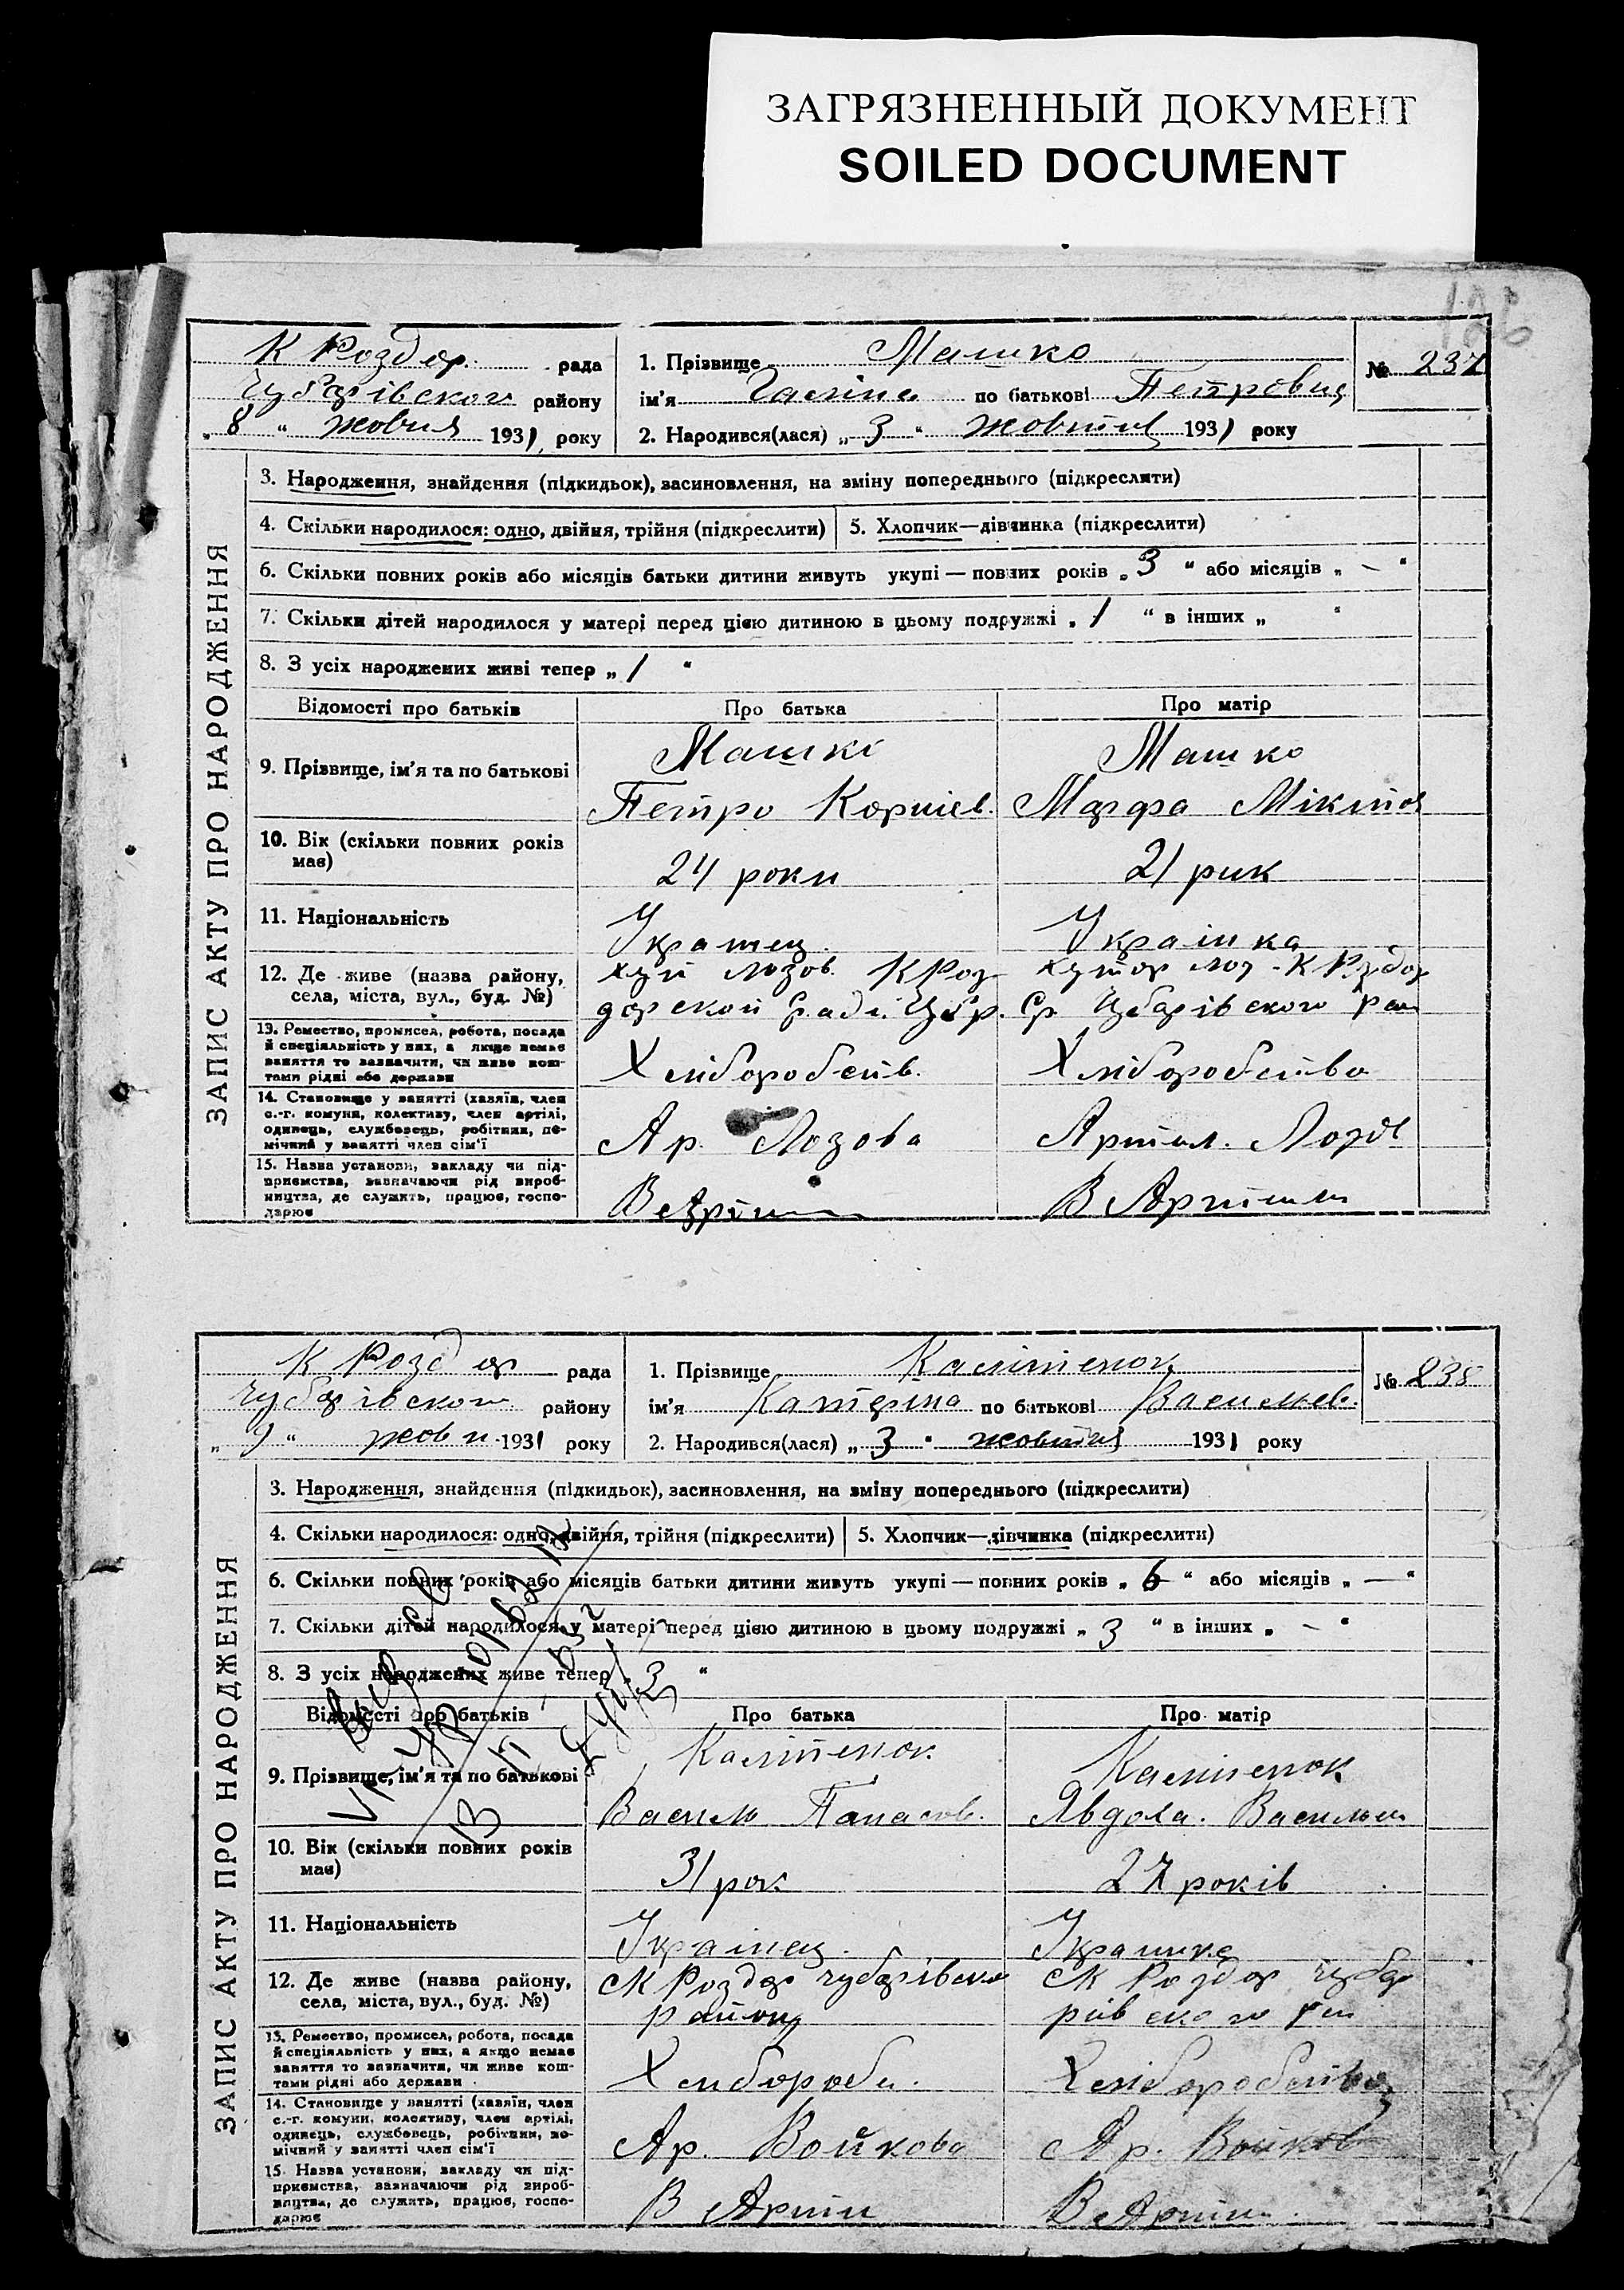 ЗАГРЯЗНЕННЫЙ ДОКУМЕНТ
SOILED DOCUMENT
126
К Роздор. рада
Чубарівского району
„ 8 “ жовтня 1931 року
1. Прізвище Машко
ім’я Галіна по батькові Петровна
2. Народився(лася) „ 3 “ жовтня 1931 року
№ 237
ЗАПИС АКТУ ПРО НАРОДЖЕННЯ
3. Народження, знайдення (підкидьок), засиновлення, на зміну попереднього (підкреслити)
4. Скільки народилося: одно, двійня, трійня (підкреслити)
5. Хлопчик—дівчинка (підкреслити)
6. Скільки повних років або місяців батьки дитини живуть укупі — повних років „ 3 “ або місяців „ — “
7. Скільки дітей народилося у матері перед цією дитиною в цьому подружжі „ 1 “ в інших „ “
8. З усіх народжених живі тепер „ 1 “
Відомості про батьків
Про батька
Про матір
9. Прізвище, ім’я та по батькові
Машко
Петро Корнієв.
Машко
Марфа Мікит
10. Вік (скільки повних років
має)
24 роки
21 рик
11. Національність
Украінец.
Украінка
12. Де живе (назва району,
села, міста, вул., буд. №)
хут Лозов. К Роз
дорской Сради
хутор Лоз - К Роздор
Ср Чубарівского рай
13. Ремество, промисел, робота, посада
й спеціяльність у них, а якщо немає
заняття то зазначити, чи живе кош-
тами рідні або держави
Хліборобств.
Хліборобство
14. Становище у занятті (хазяїн, член
с.-г. комуни, колективу, член артілі,
одинець, службовець, робітник, по-
мічний у занятті член сім’ї
Ар. Лозова
Артил. Лозов
15. Назва установи, закладу чи під-
приємства, зазначаючи рід вироб-
ництва, де служить, працює, госпо-
дарює
В Артіли
В Артили
К Роздор рада
Чубарівского району
„ 9 “ жовтн 1931 року
1. Прізвище Калітенок
ім’я Катеріна по батькові Васильев.
2. Народився(лася) „ 3 “ жовтня 1931 року
№ 238
ЗАПИС АКТУ ПРО НАРОДЖЕННЯ
3. Народження, знайдення (підкидьок), засиновлення, на зміну попереднього (підкреслити)
4. Скільки народилося: одно, двійня, трійня (підкреслити)
5. Хлопчик—дівчинка (підкреслити)
6. Скільки повних років або місяців батьки дитини живуть укупі — повних років „ 6 “ або місяців „ — “
7. Скільки дітей народилося у матері перед цією дитиною в цьому подружжі „ 3 “ в інших „ — “
8. З усіх народжених живе тепер „ 3 “
Відомості про батьків
Про батька
Про матір
9. Прізвище, ім’я та по батькові
Калітенок
Василь Панасов.
Калітенок
Явдоха. Васильев
10. Вік (скільки повних років
має)
31 рок
27 років
11. Національність
Украінец.
Украинка
12. Де живе (назва району,
села, міста, вул., буд. №)
с К Роздор Чубарівского
району
с К Роздор Чуба
рівского рай
13. Ремество, промисел, робота, посада
й спеціяльність у них, а якщо немає
заняття то зазначити, чи живе кош-
тами рідні або держави
Хлібороби.
Хліборобство
14. Становище у занятті (хазяїн, член
с.-г. комуни, колективу, член артілі,
одинець, службовець, робітник, по-
мічний у занятті член сім’ї
Ар. Войкова
Ар. Войков
15. Назва установи, закладу чи під-
приємства, зазначаючи рід вироб-
ництва, де служить, працює, госпо-
дарює
В Артіли
В Артіли